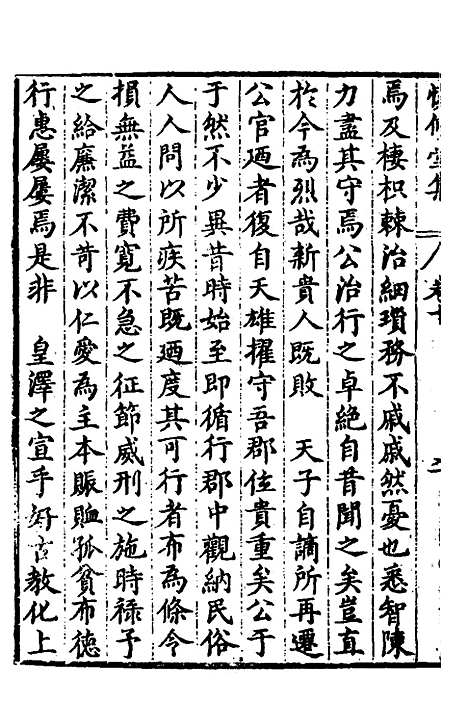 焉及棲枳棘治細瑣務不戚戚然憂也悉智陳
力盡其守焉公治行之卓絶自昔聞之矣豈直
於今為烈哉新貴人既敗　天子自謫所再遷
公官迺者復自天雄擢守吾郡位貴重矣公于
于然不少異昔時始至即循行郡中觀納民俗
人人問以所疾苦既迺度其可行者布為條令
損無益之費寛不急之征節威刑之施時祿予
之給廉潔不苛以仁愛為主本賑䘏孤貧布德
行惠屢屢焉是非　皇澤之宣乎好古教化上